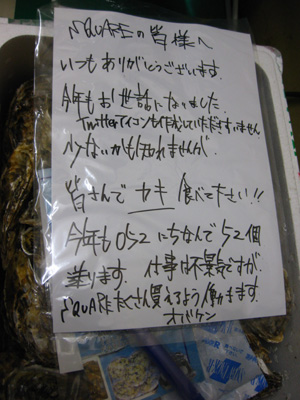 SQUAREの皆様へ
いつもありがとうございます。
今年もお世話になりました。
Twitterアイコンも作成していただきすいません
少ないかも知れませんが
皆さんで カキ 食べて下さい!!
今年も052にちなんで52個
送ります。仕事は不景気ですが、
SQUAREたくさん買えるよう働きます。
オバケン